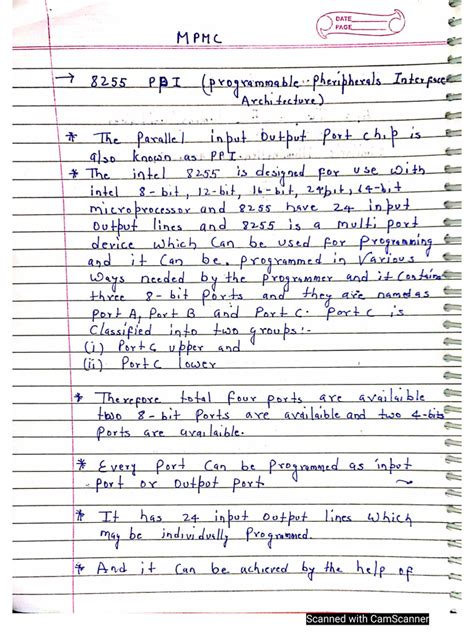 DATE
PAGE
MPMC
→ 8255 PPI (programmable Pheripherals Interface
Architecture)
* The Parallel input Output Port chip is
also known as PPI.
* The intel 8255 is designed for use with
intel 8-bit, 12-bit, 16-bit, 24bit, 64-bit
microprocessor and 8255 have 24 input
Output lines and 8255 is a multi port
device which Can be used for Programming
and it Can be. programmed in Various
Ways needed by the programmer and it Contains
three 8-bit Ports and they are named as
Port A, Port B and Port C. Port C is
Classified into two groups:-
(i) Port C upper and
(ii) Port C lower
* Therefore total four ports are availaible
two 8-bit Ports are availaible and two 4-bits
Ports are availaible.
* Every Port Can be Programmed as input
Port or Output Port
* It has 24 input Output lines Which
may be individually Programmed.
* And it Can be achieved by the help of
Scanned with CamScanner